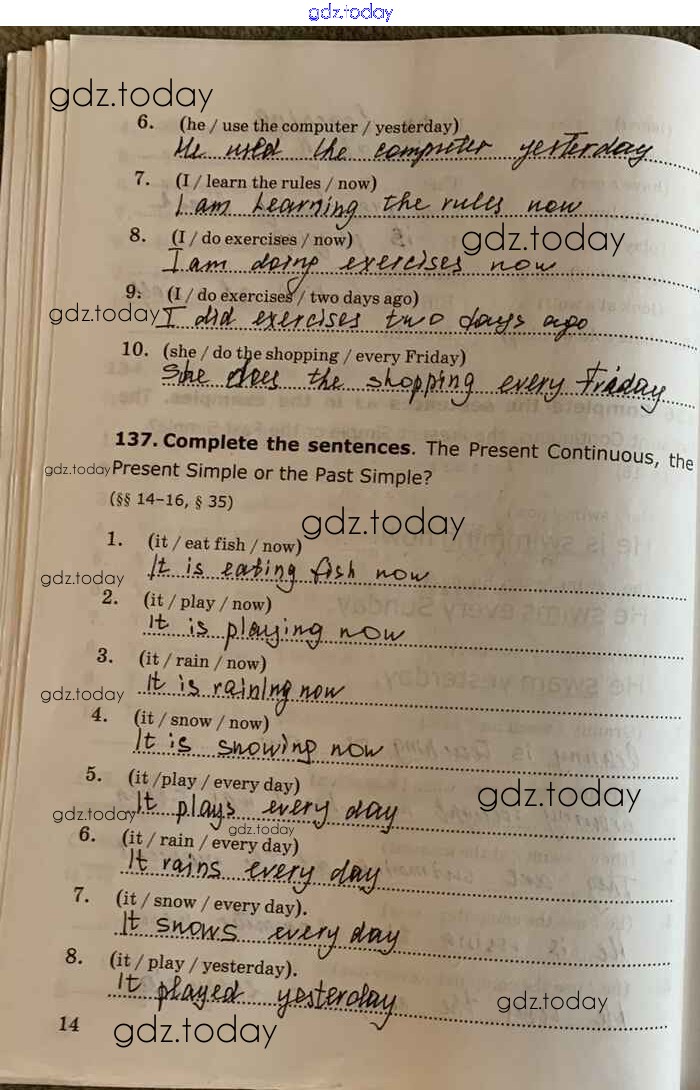 gdz.today
gdz.today
6. (he / use the computer / yesterday)
He used the computer yesterday
7. (I / learn the rules / now)
I am learning the rules now
8. (I / do exercises / now)
gdz.today
I am doing exercises now
9. (I / do exercises / two days ago)
gdz.today
I did exercises two days ago
10. (she / do the shopping / every Friday)
She does the shopping every Friday
137. Complete the sentences. The Present Continuous, the
gdz.today
Present Simple or the Past Simple?
(§§ 14–16, § 35)
gdz.today
1. (it / eat fish / now)
It is eating fish now
gdz.today
2. (it / play / now)
It is playing now
3. (it / rain / now)
It is raining now
gdz.today
4. (it / snow / now)
It is snowing now
5. (it /play / every day)
gdz.today
It plays every day
gdz.today
gdz.today
6. (it / rain / every day)
It rains every day
7. (it / snow / every day).
It snows every day
8. (it / play / yesterday).
It played yesterday
gdz.today
14
gdz.today